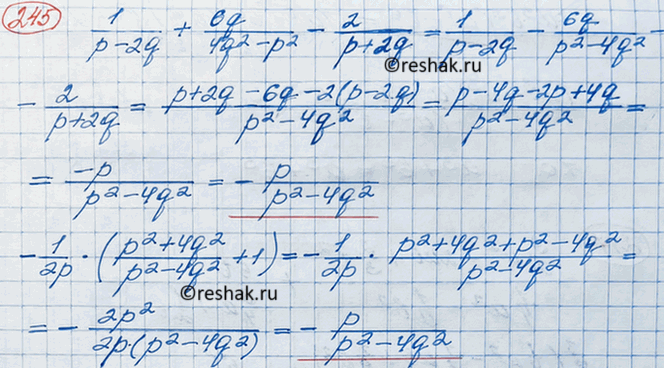 245
1/(p-2q) + 6q/(4q²-p²) - 2/(p+2q) = 1/(p-2q) - 6q/(p²-4q²) -
©reshak.ru
- 2/(p+2q) = (p+2q-6q-2(p-2q))/(p²-4q²) = (p-4q-2p+4q)/(p²-4q²) =
= -p/(p²-4q²) = - p/(p²-4q²)
- 1/2p · ((p²+4q²)/(p²-4q²) + 1) = - 1/2p · (p²+4q²+p²-4q²)/(p²-4q²) =
©reshak.ru
= - 2p²/(2p·(p²-4q²)) = - p/(p²-4q²)